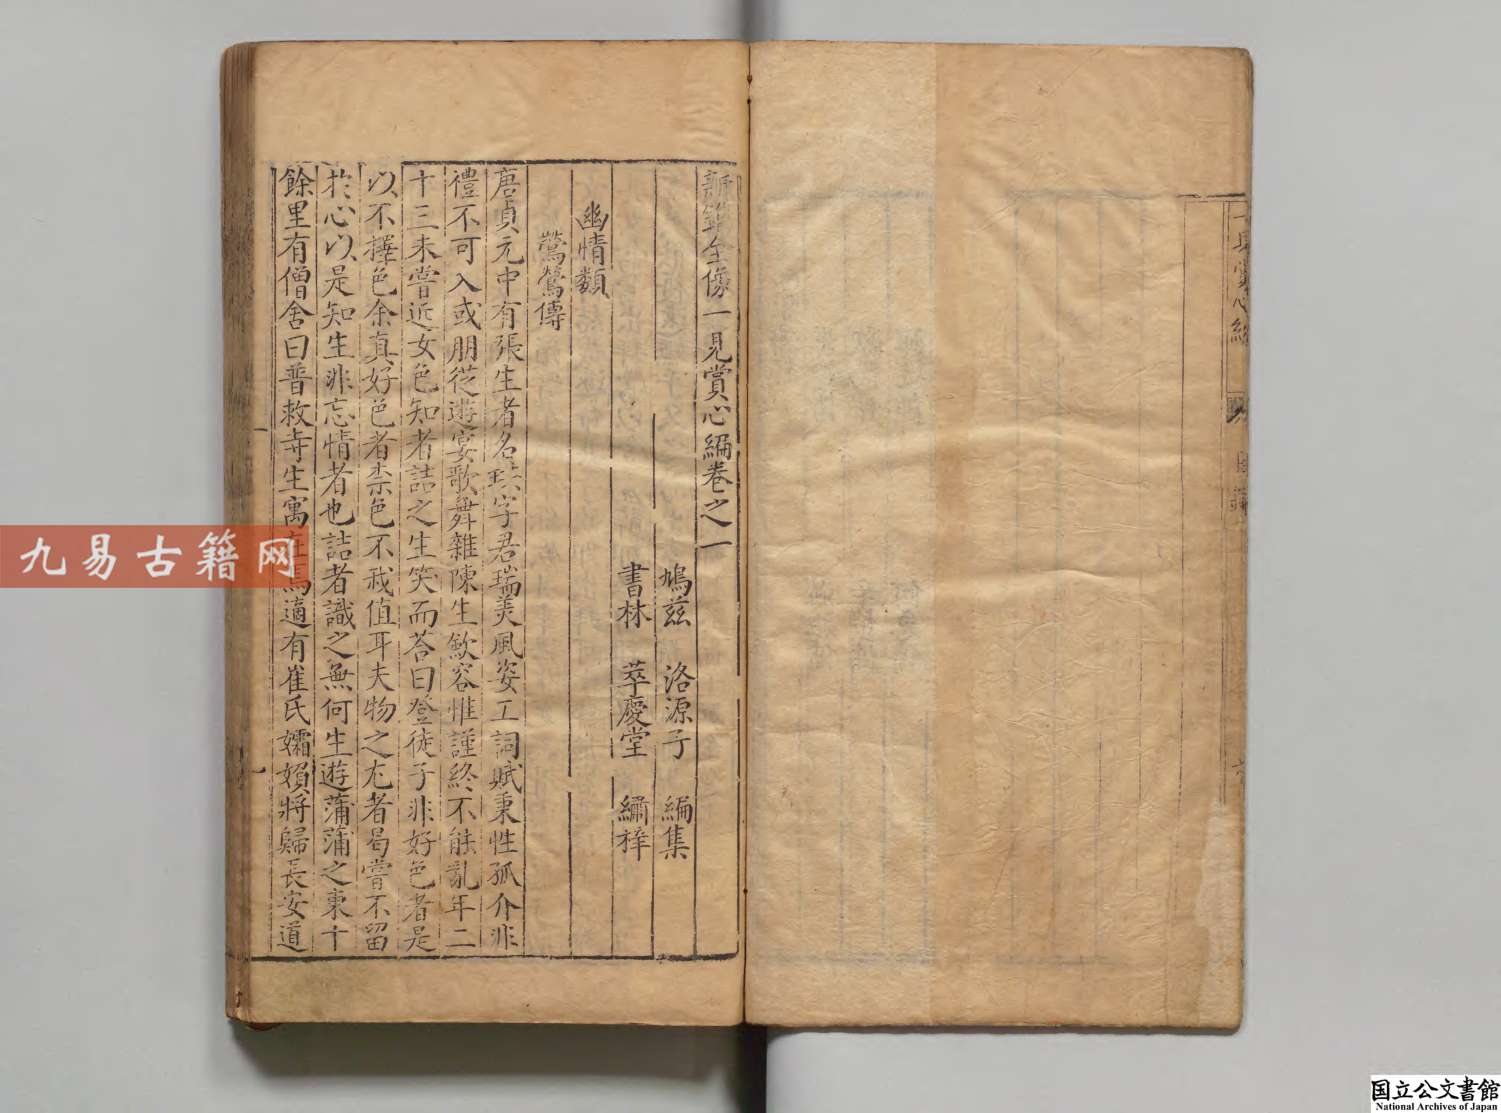 新鋟全像一見賞心編卷之一
鳩茲　洛源子　編集
書林　萃慶堂　繡梓
幽情類
鶯鶯傳
唐貞元中有張生者名珙字君瑞美風姿工詞賦秉性孤介非
禮不可入或朋從遊宴歌舞雜陳生歛容惟謹終不能亂年二
十三未嘗近女色知者詰之生笑而荅曰登徒子非好色者是
以不擇色余真好色者柰色不我值耳夫物之尤者曷嘗不留
於心以是知生非忘情者也詰者識之無何生遊蒲蒲之東十
餘里有僧舍曰普救寺生寓在焉適有崔氏孀嬪將歸長安道
一見賞心編
九易古籍网
国立公文書館
National Archives of Japan